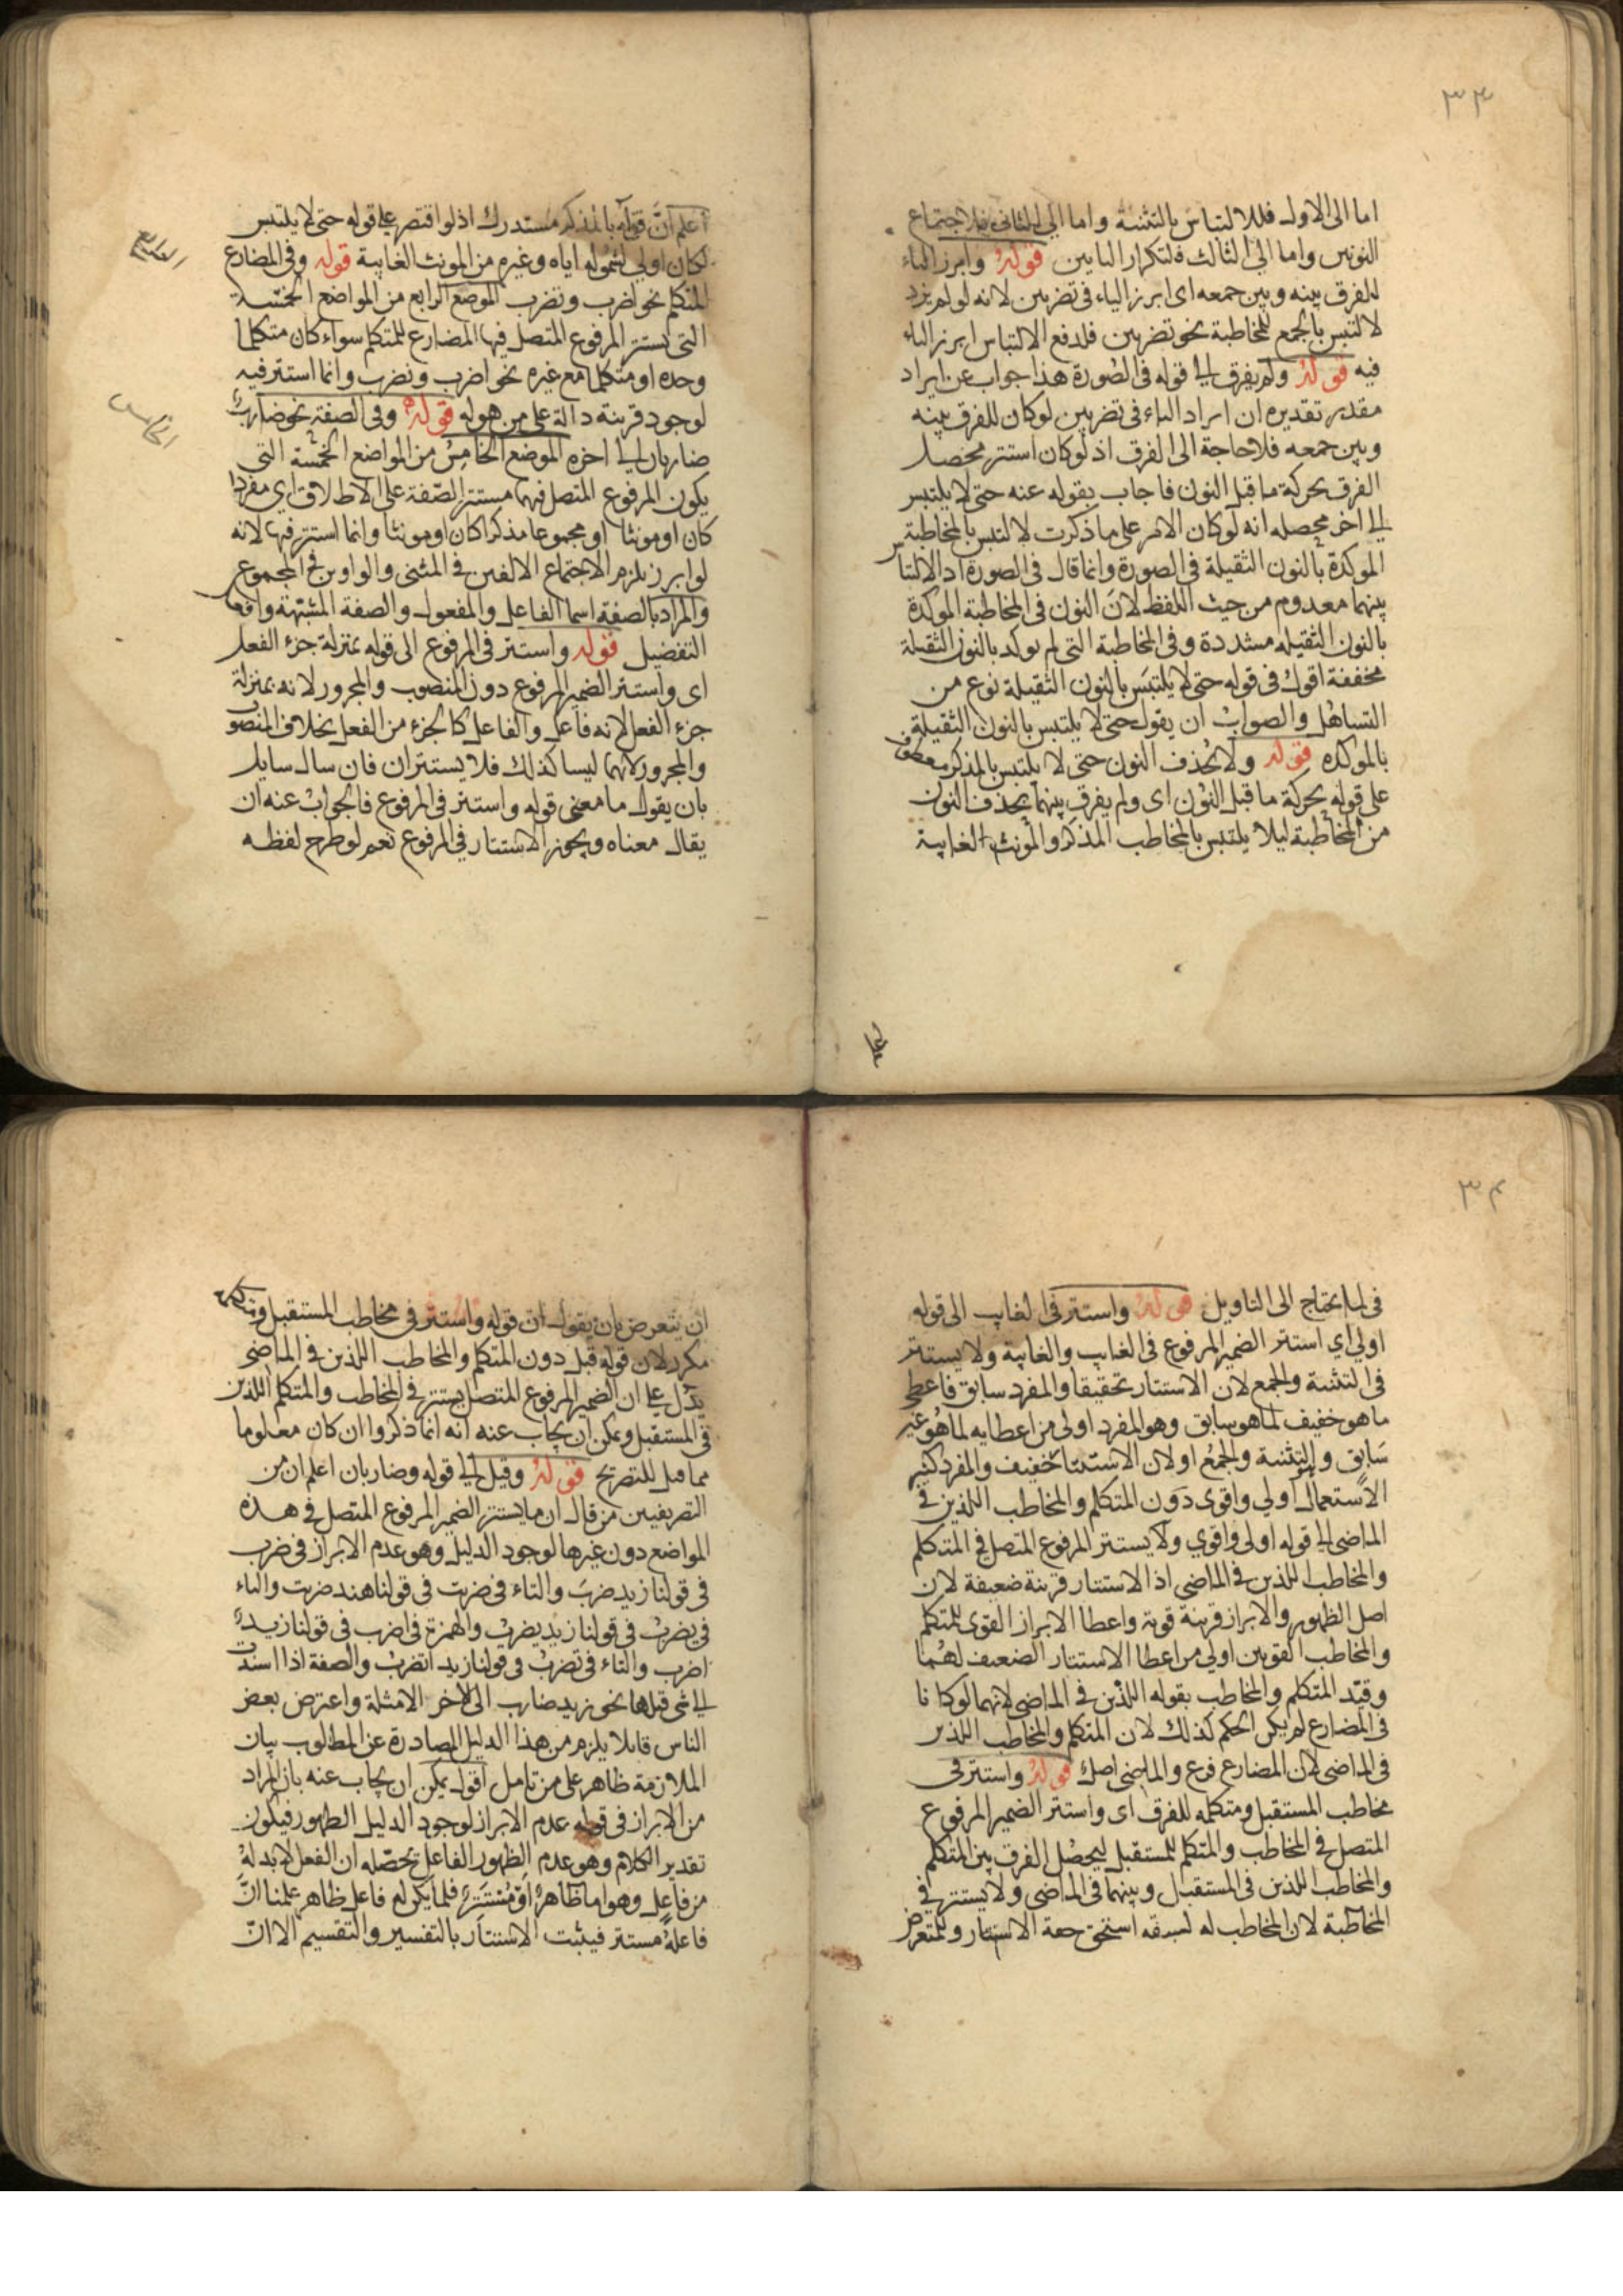 ٣٣
اما الى الاول فللالتباس بالتثنية واما الي الثانى فلاجتماع
النونين واما الي الثالث فلتكرار اليايين قوله وابرز الياء
للفرق بينه وبين جمعه اى ابرز الياء فى تضربين لانه لو لم يزد
لالتبس بالجمع للمخاطبة نحو تضربين فلدفع الالتباس ابرز الياء
فيه قوله ولم يفرق الي قوله فى الصورة هذا جواب عن ايراد
مقدر تقديره ان ايراد الياء فى تضربين لو كان للفرق بينه
وبين جمعه فلا حاجة الى الفرق اذ لو كان استتر محصل
الفرق بحركة ما قبل النون فاجاب بقوله عنه حتى لا يلتبس
الي اخر محصله انه لو كان الامر على ما ذكرت لالتبس بالمخاطبة
الموكدة بالنون الثقيلة فى الصورة وانما قال فى الصورة اذ الالتباس
بينهما معدوم من حيث اللفظ لان النون فى المخاطبة الموكدة
بالنون الثقيله مشددة وفى المخاطبة التى لم يوكد بالنون الثقيلة
مخففة اقول فى قوله حتى لا يلتبس بالنون الثقيلة نوع من
التساهل والصواب ان يقول حتى لا يلتبس بالنون الثقيلة
بالموكده قوله ولا يحذف النون حتى لا يلتبس بالمذكر معطوف
على قوله بحركة ما قبل النون اى ولم يفرق بينهما بحذف النون
من المخاطبة ليلا يلتبس بالمخاطب المذكر والمونث الغايبة
اعلم ان قوله بالمذكر مستدرك اذ لو اقتصر على قوله حتى لا يلتبس
لكان اولي لشموله اياه وغيره من المونث الغايبة قوله وفى المضارع
المتكلم نحو اضرب ونضرب الموضع الرابع من المواضع الخمسة
التى يستتر المرفوع المتصل فيها المضارع للمتكلم سواء كان متكلما
وحده او متكلما مع غيره نحو اضرب ونضرب وانما استتر فيه
لوجود قرينة دالة على من هو له قوله وفى الصفة نحو ضارب
ضاربان الي اخره الموضع الخامس من المواضع الخمسة التى
يكون المرفوع المتصل فيهما مستتر الصفة على الاطلاق اي مفردا
كان او مونثا او مجموعا مذكرا كان او مونثا وانما استتر فيها لانه
لو ابرز يلزم الاجتماع الالفين فى المثنى والواوين فى المجموع
والمراد بالصفة اسما الفاعل والمفعول والصفة المشبهة وافعل
التفضيل قوله واستتر فى المرفوع الى قوله بمنزلة جزء الفعل
اى واستتر الضمير المرفوع دون المنصوب والمجرور لانه بمنزلة
جزء الفعل لانه فاعل والفاعل كالجزء من الفعل بخلاف المنصوب
والمجرور لانهما ليسا كذلك فلا يستتران فان سال سايل
بان يقول ما معنى قوله واستتر فى المرفوع فالجواب عنه ان
يقال معناه ويجوز الاستتار فى المرفوع نعم لو طرح لفظه
الرابع
الخامس
٣٤
فى لما يحتاج الى التاويل قوله واستتر فى الغايب الى قوله
اولي اي استتر الضمير المرفوع فى الغايب والغايبة ولا يستتر
فى التثنية والجمع لان الاستتار تحقيقا والمفرد سابق فاعطى
ما هو خفيف لما هو سابق وهو المفرد اولى من اعطايه لما هو غير
سابق والتثنية والجمع او لان الاستتار تخفيف والمفرد كثير
الاستعمال اولي واقوى دون المتكلم والمخاطب اللذين فى
الماضى الي قوله اولى واقوي ولا يستتر المرفوع المتصل فى المتكلم
والمخاطب اللذين فى الماضى اذ الاستتار قرينة ضعيفة لان
اصل الظهور والابراز قرينة قوية واعطا الابراز القوى للمتكلم
والمخاطب القويين اولي من اعطا الاستتار الضعيف لهما
وقيد المتكلم والمخاطب بقوله اللذين فى الماضى لانهما لو كانا
فى المضارع لم يكن الحكم كذلك لان المتكلم والمخاطب اللذين
فى الماضى لان المضارع فرع والماضى اصل قوله واستتر فى
مخاطب المستقبل ومتكلمه للفرق اى واستتر الضمير المرفوع
المتصل فى المخاطب والمتكلم للمستقبل ليحصل الفرق بين المتكلم
والمخاطب اللذين فى المستقبل وبينهما فى الماضى ولا يستتر فى
المخاطبة لان المخاطب له لسبقه استحق حقة الاستتار وللمتعرض
ان يتعرض بان يقول ان قوله واستتر فى مخاطب المستقبل ومتكلمه
مكرر لان قوله قبل دون المتكلم والمخاطب اللذين فى الماضى
يدل على ان الضمير المرفوع المتصل يستتر فى المخاطب والمتكلم اللذين
فى المستقبل ويمكن ان يجاب عنه انه انما ذكروا ان كان معلوما
مما قبل للتصريح قوله وقيل الي قوله وضاربان اعلم ان من
التصريفيين من قال ان ما يستتر الضمير المرفوع المتصل فى هذه
المواضع دون غيرها لوجود الدليل وهو عدم الابراز فى ضرب
فى قولنا زيد ضرب والتاء فى ضربت فى قولنا هند ضربت والياء
فى يضرب فى قولنا زيد يضرب والهمزة فى اضرب فى قولنا زيد
اضرب والتاء فى تضرب فى قولنا زيد اتضرب والصفة اذا اسندت
الي شى قبلها نحو زيد ضارب الى الاخر الامثلة واعترض بعض
الناس قايلا يلزم من هذا الدليل المصادرة عن المطلوب بيان
الملازمة ظاهر على من تامل اقول يمكن ان يجاب عنه بان المراد
من الابراز فى قوله عدم الابراز لوجود الدليل الظهور فيكون
تقدير الكلام وهو عدم الظهور الفاعل تحصله ان الفعل لا بد له
من فاعل وهو اما ظاهر او مستتر فلما لم يكن له فاعل ظاهر علمنا ان
فاعله مستتر فيثبت الاستتار بالتفسير والتقسيم الا ان